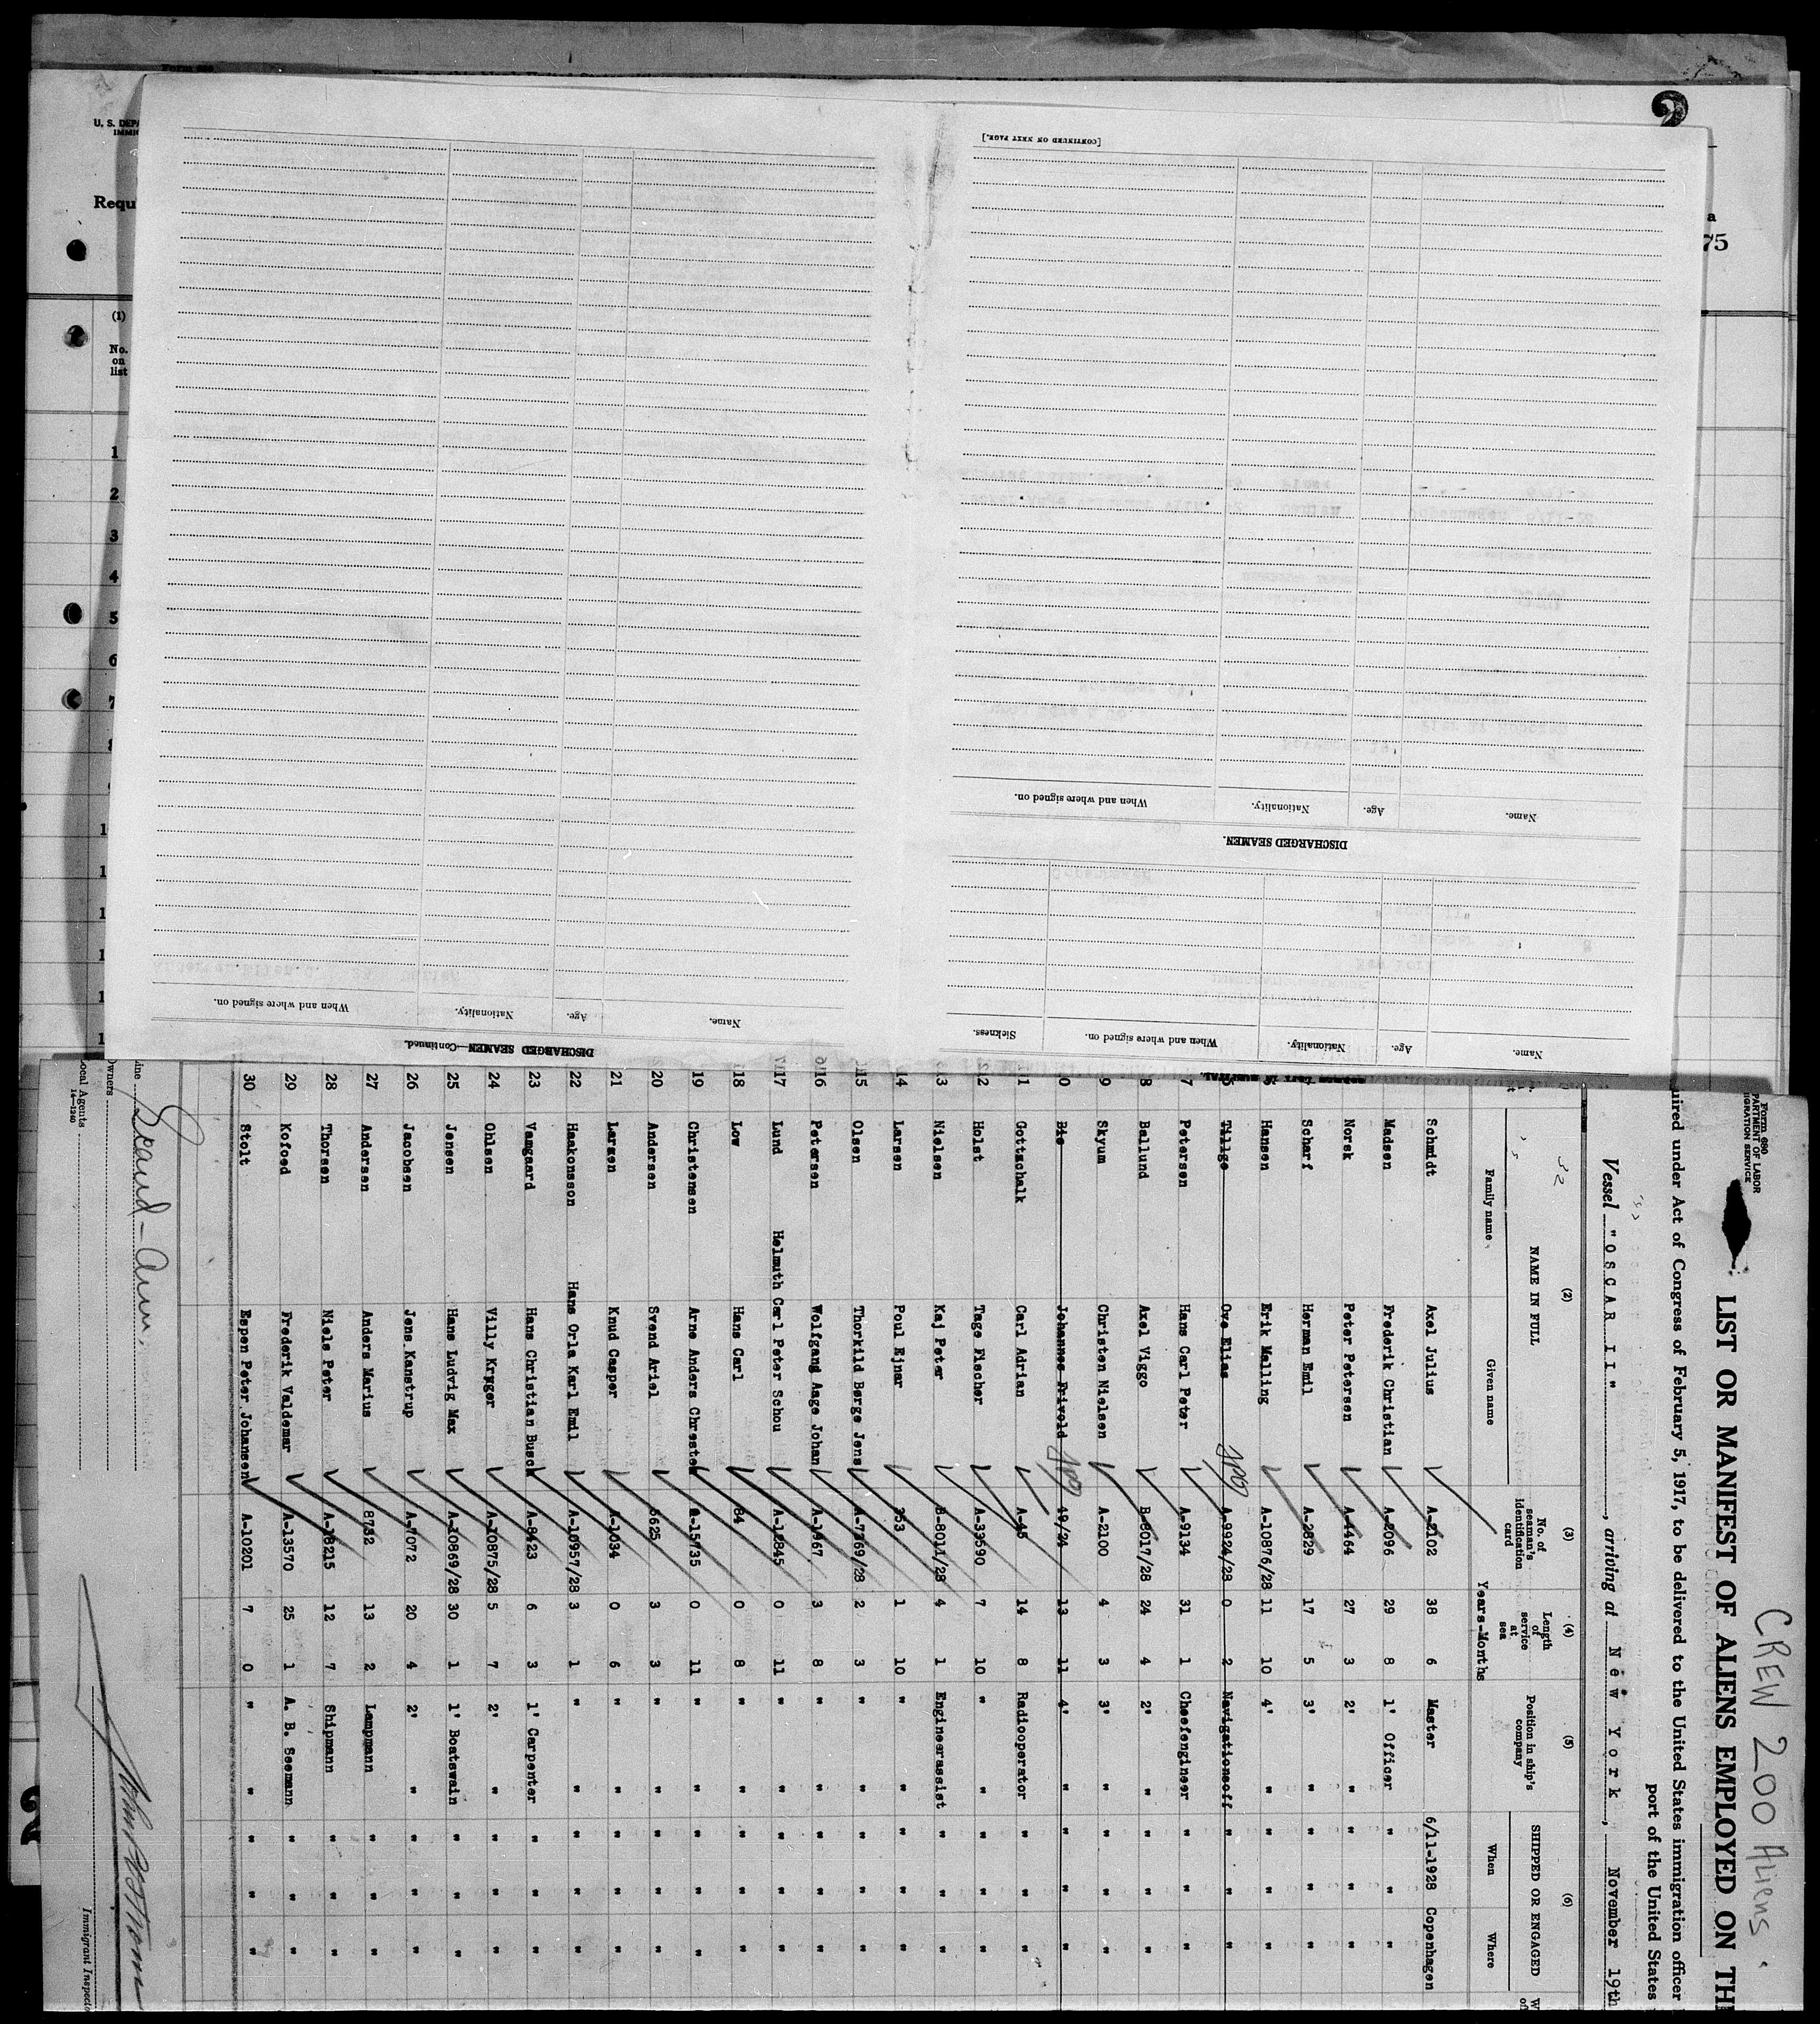 Form 680
U. S. DEPARTMENT OF LABOR
IMMIGRATION SERVICE
CREW 200 Aliens.
LIST OR MANIFEST OF ALIENS EMPLOYED ON TH
uired under Act of Congress of February 5, 1917, to be delivered to the United States immigration officer
port of the United States
Vessel "OSCAR II", arriving at New York, November 19th
32
(2) (3) (4) (5) (6)
NAME IN FULL No. of seaman's identification card Length of service at sea Position in ship's company SHIPPED OR ENGAGED
Family name Given name Years-Months When Where
Schmidt Axel Julius A-2102 38 6 Master 6/11-1928 Copenhagen
Madsen Frederik Christian A-2096 29 8 1' Officer " " "
Norsk Peter Petersen A-4464 27 3 2' " " " "
Scharf Herman Emil A-2829 17 5 3' " " " "
Hansen Erik Malling A-10876/28 11 10 4' " " " "
Tillge Ove Elias A-9924/28 0 2 Navigationsoff " " "
7 Petersen Hans Carl Peter A-9134 31 1 Cheefengineer " " "
8 Ballund Axel Viggo B-8017/28 24 4 2' " " " "
9 Skyum Christen Nielsen A-2100 4 3 3' " " " "
10 Bie Johannes Frivold 49/24 13 11 4' " " " "
11 Gottschalk Carl Adrian A-45 14 8 Radiooperator " " "
12 Holst Tage Fischer A-33590 7 10 " " " " "
13 Nielsen Kaj Peter B-8011/28 4 1 Engineerassist " " "
14 Larsen Poul Ejnar 353 1 10 " " " " "
15 Olsen Thorkild Børge Jens A-7769/28 2 3 " " " " "
16 Petersen Wolfgang Aage Johan A-1467 3 8 " " " " "
17 Lund Helmuth Carl Peter Schou A-12845 0 11 " " " " "
18 Low Hans Carl 84 0 8 " " " " "
19 Christensen Arne Anders Chresten A-15735 0 11 " " " " "
20 Andersen Svend Ariel 6625 3 3 " " " " "
21 Larsen Knud Casper A-1034 0 6 " " " " "
22 Haakonsson Hans Orla Karl Emil A-10957/28 3 1 " " " " "
23 Vamgaard Hans Christian Busck A-8423 6 3 1' Carpenter " " "
24 Ohlsen Villy Kryger A-10875/28 5 7 2' " " " "
25 Jensen Hans Ludvig Max A-10869/28 30 1 1' Boatswain " " "
26 Jacobsen Jens Kanstrup A-7072 20 4 2' " " " "
27 Andersen Anders Marius 8732 13 2 Lampmann " " "
28 Thorsen Niels Peter A-18215 12 7 Shipmann " " "
29 Kofoed Frederik Valdemar A-13570 25 1 A. B. Seemann " " "
30 Stolt Espen Peter Johansen A-10201 7 0 " " " " "
Line Scand-Am.
Owners
Local Agents
14—1240
Immigrant Inspector
[CONTINUED ON NEXT PAGE.]
Name. Age. Nationality. When and where signed on. Sickness.
DISCHARGED SEAMEN.
Name. Age. Nationality. When and where signed on.
DISCHARGED SEAMEN—Continued.
Name. Age. Nationality. When and where signed on.
U. S. DEPA
IMMIG
Requ
(1)
No. on list
1
2
3
4
5
6
7
a
75
2
2